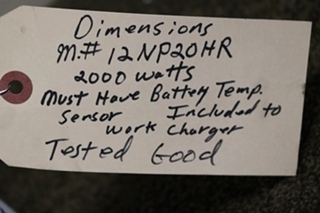 Dimensions
M.# 12NP20HR
2000 watts
Must Have Battery Temp.
Sensor Included to
work Charger
Tested Good